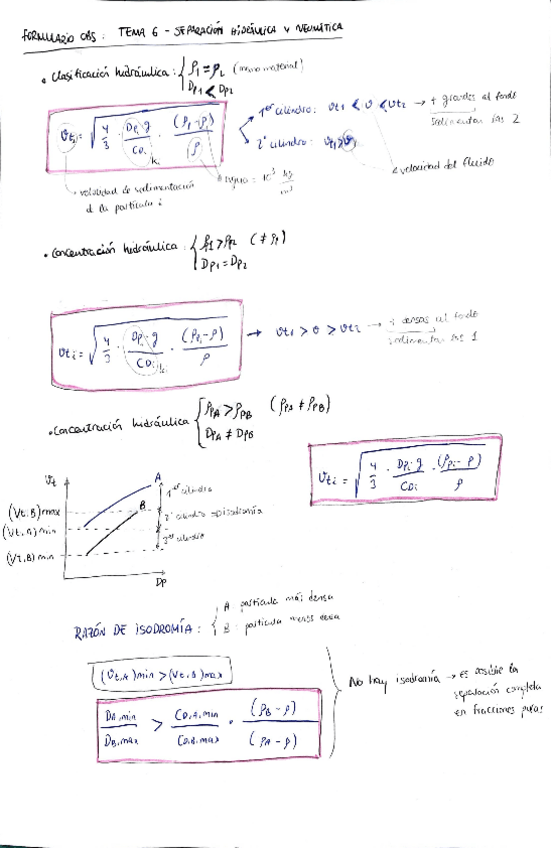 FORMULARIO OBS: TEMA 6 - SEPARACIÓN HIDRÁULICA Y NEUMÁTICA
• Clasificación hidráulica: { ρ1 = ρ2 (mismo material)
Dp1 < Dp2
vti = √(4/3 · Dpi g / CDi · (ρi - ρ) / ρ)
1er cilindro: vt1 < v < vt2 → + grandes al fondo
sedimentan las 2
2º cilindro: vt1 > v
velocidad del fluido
velocidad de sedimentación
d la partícula i
ρagua = 10³ kg/m³
• Concentración hidráulica: { ρ1 > ρp2 (≠ ρ)
Dp1 = Dp2
vti = √(4/3 · Dpi g / CDi · (ρpi - ρ) / ρ) → vt1 > v > vt2 → + densas al fondo
sedimentan las 1
• Concentración hidráulica { ρpA > ρpB (ρpA ≠ ρpB)
DpA ≠ DpB
vti = √(4/3 · Dpi g / CDi · (ρpi - ρ) / ρ)
vt
A
1er cilindro
B
(Vt,B) max
2º cilindro → isodromía
(Vt,A) min
3er cilindro
(Vt,B) min
Dp
RAZÓN DE ISODROMÍA: { A partícula más densa
B partícula menos densa
(vt,A) min > (vt,B) max
DA,min / DB,max > CD,A,min / CD,B,max · (ρB - ρ) / (ρA - ρ)
No hay isodromía → es posible la
separación completa
en fracciones puras